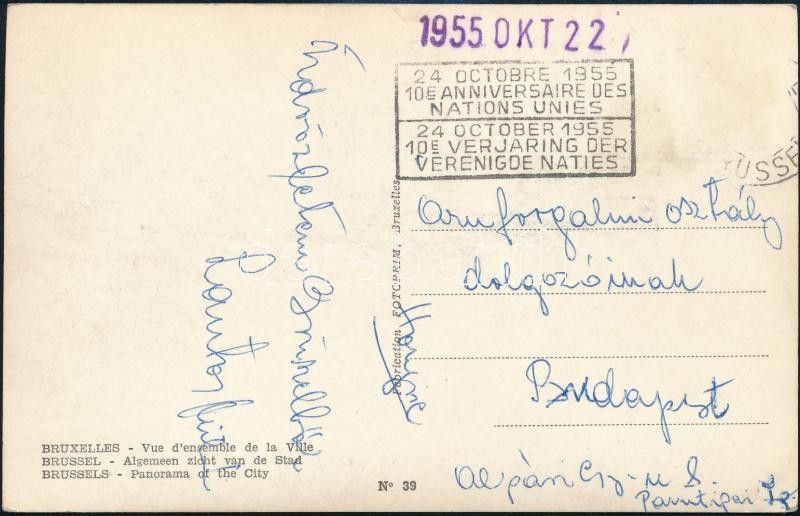 1955 OKT 22
24 OCTOBRE 1955
10E ANNIVERSAIRE DES
NATIONS UNIES
24 OCTOBER 1955
10E VERJARING DER
VERENIGDE NATIES
Üdvözletem Brüsselből
Fabrication FOTOPRIM, Bruxelles
Áruforgalmi osztály
dolgozóinak
Budapest
BRUXELLES - Vue d'ensemble de la Ville
BRUSSEL - Algemeen zicht van de Stad
BRUSSELS - Panorama of the City
N° 39